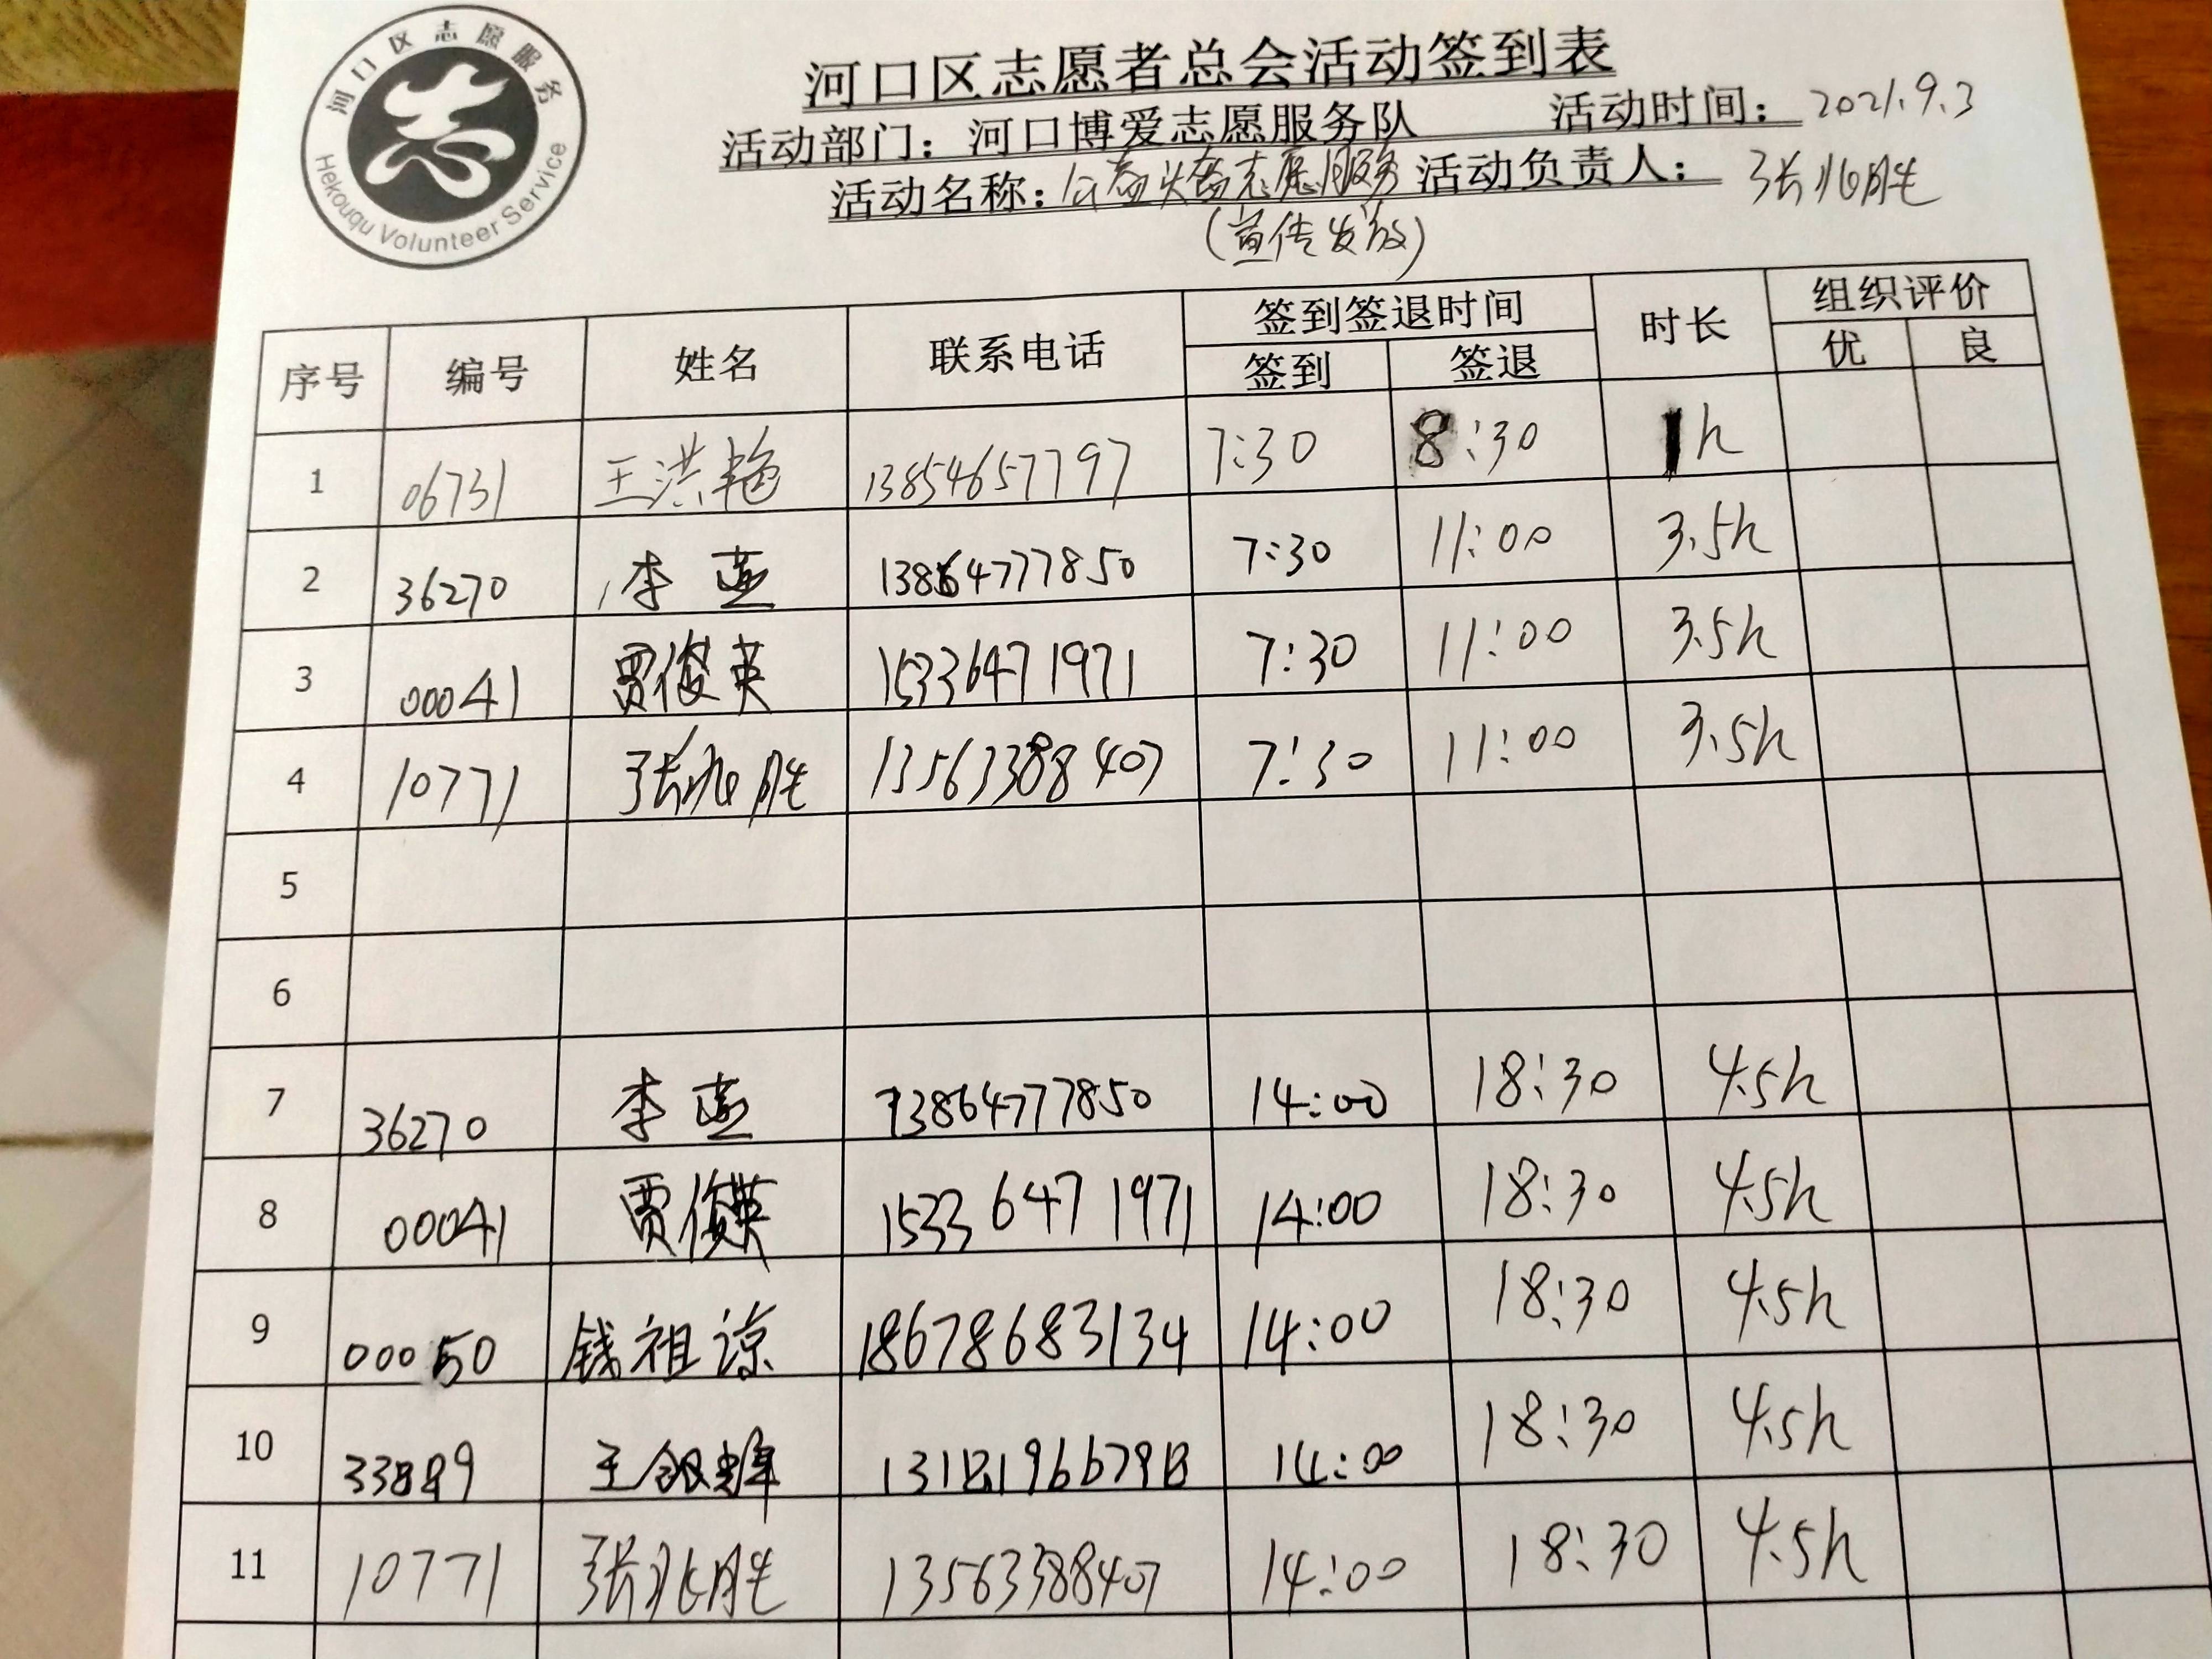 河口区志愿服务
Hekouqu Volunteer Service
河口区志愿者总会活动签到表
活动部门：河口博爱志愿服务队 活动时间：2021.9.3
活动名称：公益火畜志愿服务 活动负责人：张兆胜
(宣传发放)
序号 编号 姓名 联系电话 签到签退时间 时长 组织评价
签到 签退 优 良
1 06731 王洪艳 13854657797 7:30 8:30 1h
2 36270 李 燕 13864777850 7:30 11:00 3.5h
3 00041 贾俊英 15336471971 7:30 11:00 3.5h
4 10771 张兆胜 13563388407 7:30 11:00 3.5h
5
6
7 36270 李 燕 13864777850 14:00 18:30 4.5h
8 00041 贾俊英 1533 647 1971 14:00 18:30 4.5h
9 00050 钱祖谅 18678683134 14:00 18:30 4.5h
10 33889 王 14:00 18:30 4.5h
11 10771 张兆胜 13563388407 14:00 18:30 4.5h